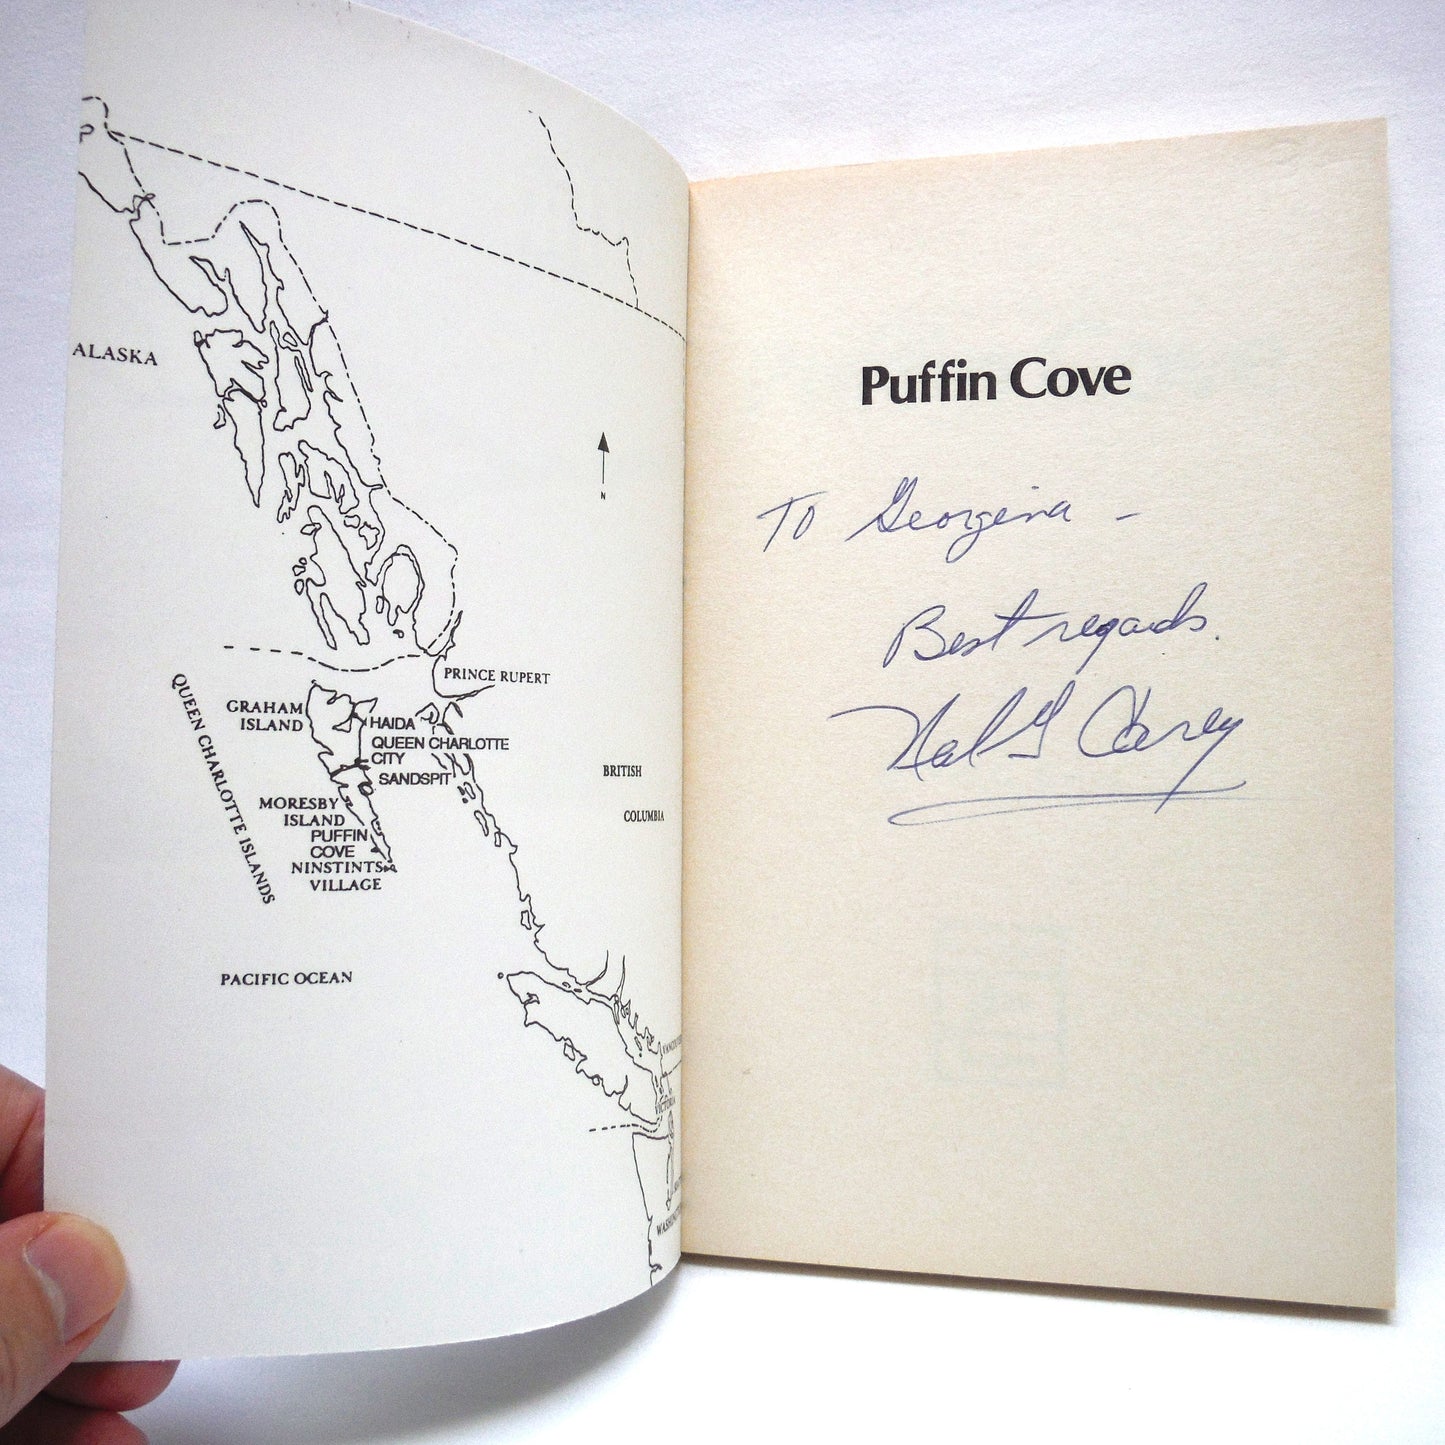 ALASKA
N
PRINCE RUPERT
GRAHAM
ISLAND
HAIDA
QUEEN CHARLOTTE
CITY
SANDSPIT
QUEEN CHARLOTTE ISLANDS
MORESBY
ISLAND
PUFFIN
COVE
NINSTINTS
VILLAGE
BRITISH
COLUMBIA
PACIFIC OCEAN
VICTORIA
Puffin Cove
To Georgina -
Best regards.
Neil G Carey